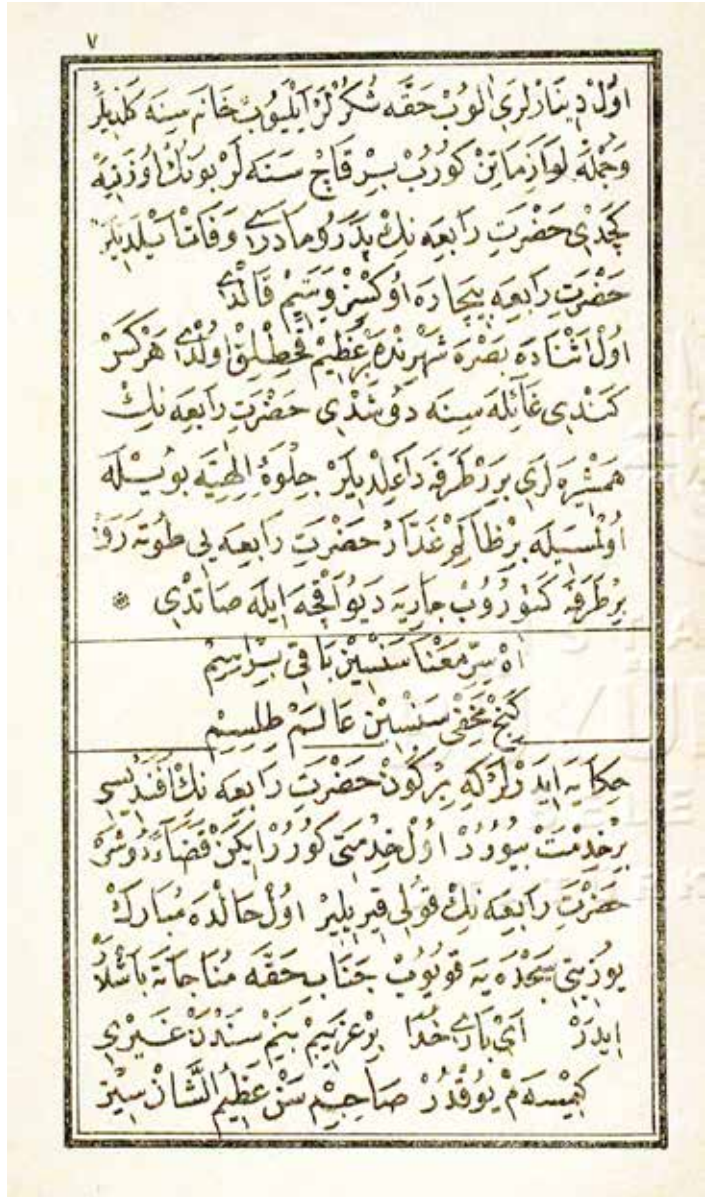 ٧
اول دینارلری الوب حقه شکرلر ایلیوب خانه سینه کلدیلر
وجمله لوازماتن کوروب بیر قاچ سنه لر بونك اوزرینه
کچدی حضرت رابعه نك پدر و مادری وفات ایلدیلر
حضرت رابعه بیچاره اوکسز و یتیم قالدی
اول اثناده بصره شهرنده بر عظیم قحطلق اولدی هرکس
کندی غائله سینه دوشدی حضرت رابعه نك
همشیره لری برر طرفه داغلدیلر جلوهٔ الهیه بویله
اولمسیله بر ظالم غدار حضرت رابعه یی طوته رق
بر طرفه کتوروب جاریه دیو اقچه ایله صاتدی ※
اه سر معنا سنسین باقی بر اسم
کنج مخفی سنسین عالم طلسم
حکایه ایدرلرکه بر کون حضرت رابعه نك افندیسی
بر خدمت بیورر اول خدمتی کورر ایکن قضاء دوشر
حضرت رابعه نك قولی قیریلیر اول حالده مبارك
یوزینی سجده یه قویوب جناب حقه مناجاته باشلار
ایدر ای باری خدا بر غریبیم بنم سندن غیری
کیمسه م یوقدر صاحبم سن عظیم الشان سیز